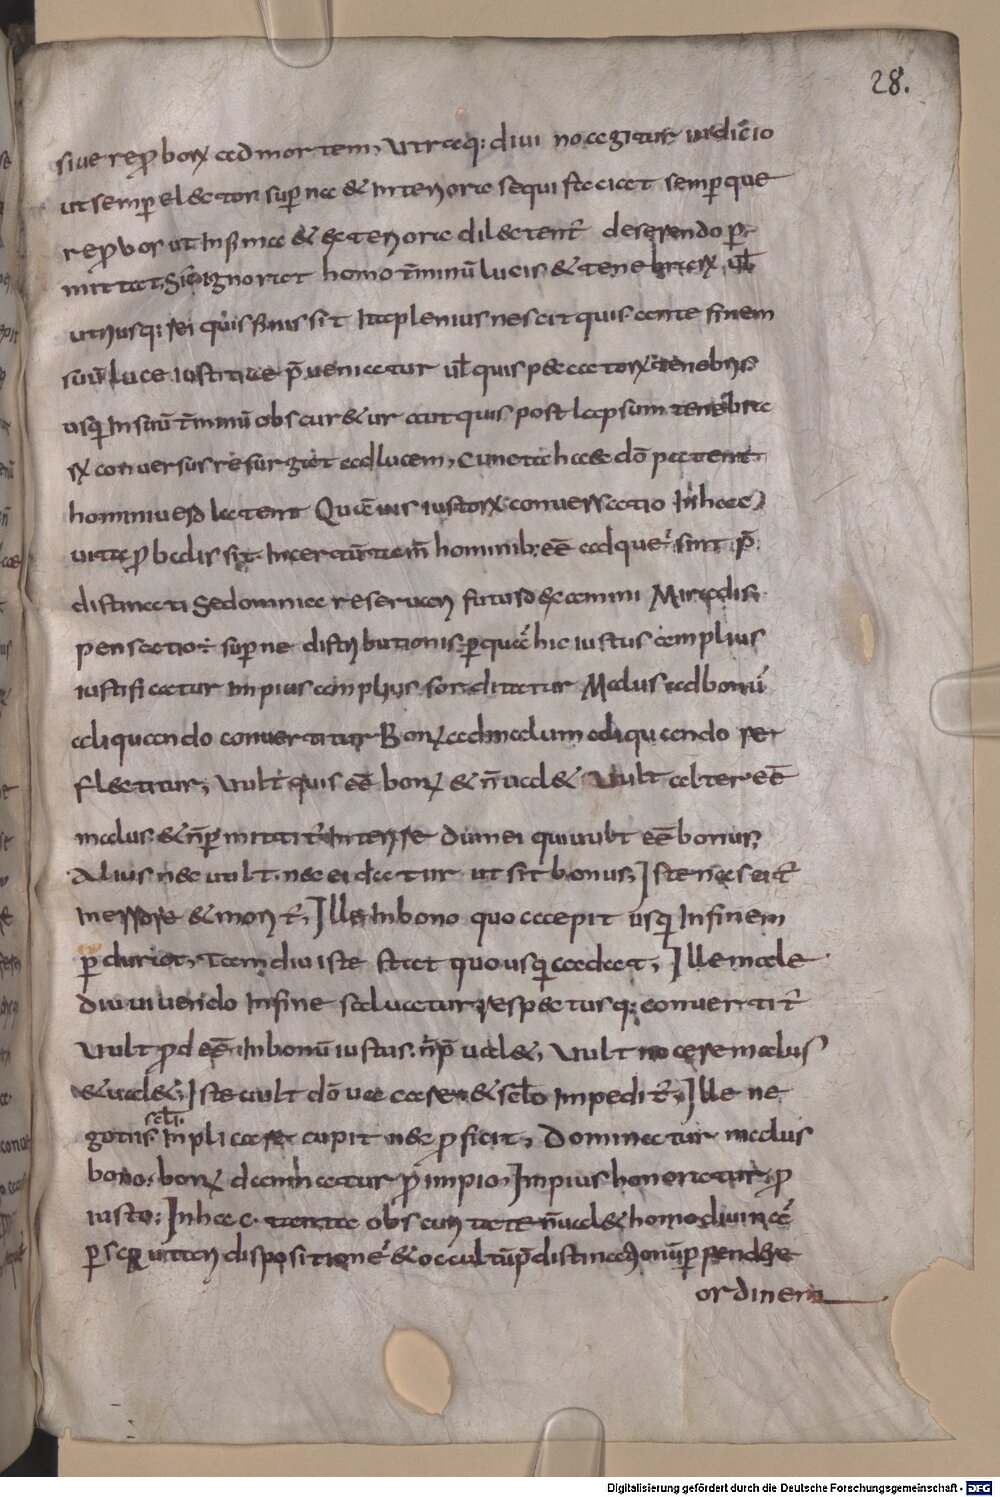 28.
siue reꝓborꝝ ad mortem, utraq: diui no agitur iudicio
ut semꝑ electos suꝑna & interiora sequi faciat semꝑque
reꝓbos ut infima & exteriora dilectent̄ deserendo ꝑ
mittat, Sic ignorat homo t̄minū lucis & tenebrarꝝ, ul̄
utriusq: rei quis finis sit nec plenius nescit quis ante finem
suū luce iustitiae p̄ueniatur ul̄ quis peccatorꝝ tenebris
usq; in suū t̄minū obscuretur aut quis post lapsum tenebra
rꝝ conuersus resurgat ad lucem, Cuncta haec dō patent
hominiuero latent Quāuis iustorꝝ conuersatio in hac
uita ꝓbabilis sit incertū tam̄ hominib; eē ad que sint p̄
distinati Sed omnia reseruari futuro examini Mira dis
pensatio ÷ suꝑne distributionis ꝑ quā hic iustus amplius
iustificatur impius amplius sorditatur Malus ad bonū
aliquando conuertitur Bonꝰ ad malum aliquando re
flectitur, uult quis eē bonꝰ & n̄ ualet uult alter eē
malus & n̄ ꝑmittit̄ interire dum ei qui uult eē bonus,
Alius nec uult nec ei datur ut sit bonus, Iste nascit̄
in errore & morit̄, Ille in bono quo coepit usq; in finem
ꝑdurat, Tam diu iste stat quousq; cadat, Ille male
diu uiuendo in fine saluatur respectusq; conuertit̄
uult ꝓdeē in bonū iustus n̄ p̄ualet, uult nocere malus
& ualet, Iste uult dō uacare & sc̄lo impedit̄, Ille ne
sc̄li
gotiis inplicare cupit nec ꝓficit, Dominatur malus
bono, bonꝰ damnatur ꝓ impio, Impius honoratur ꝓ
iusto; In hac tanta obscuritate n̄ ualet homo diuinā
ꝑscrutari dispositionē & occultū p̄distinationū ꝑpendere
ordinem
Digitalisierung gefördert durch die Deutsche Forschungsgemeinschaft - DFG